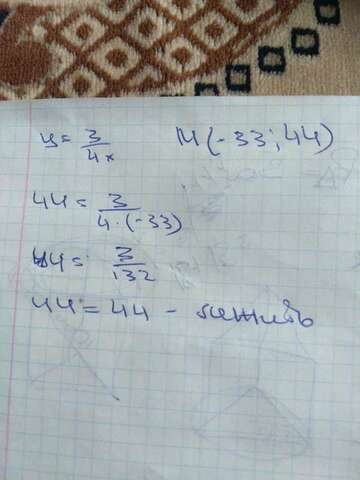 y = 3/4x M(-33; 44)
44 = 3/4·(-33)
44 = 3/132
44 = 44 -